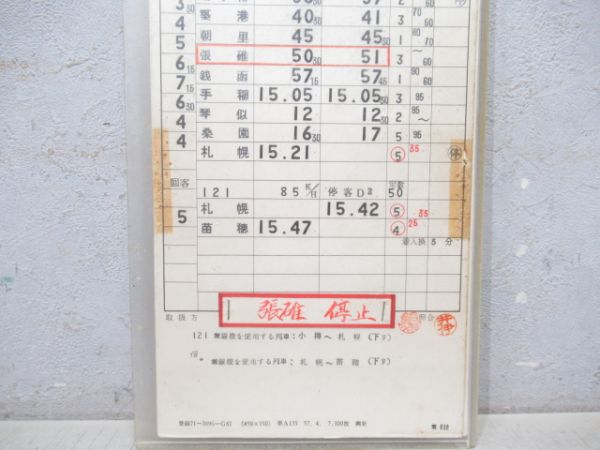 築港 40 41 3 70
5 朝里 45 45 30 1 80 60
張碓 50 30 51 3 〜 60
銭函 57 15 57 45 1 80 60
手稲 15.05 15.05 30 3 95
琴似 12 12 30 2 95 〜
4 桑園 16 30 17 5 95
4 札幌 15.21 ⑤ 35 停
回客 定数
121 85 K/H 停客D2 50
札幌 15.42 ⑤ 35
5 苗穂 15.47 ④ 25
着入換 5分
張碓 停止
取扱方 照合
121 無線機を使用する列車:小樽〜札幌(下り)
無線機を使用する列車:札幌〜苗穂(下り)